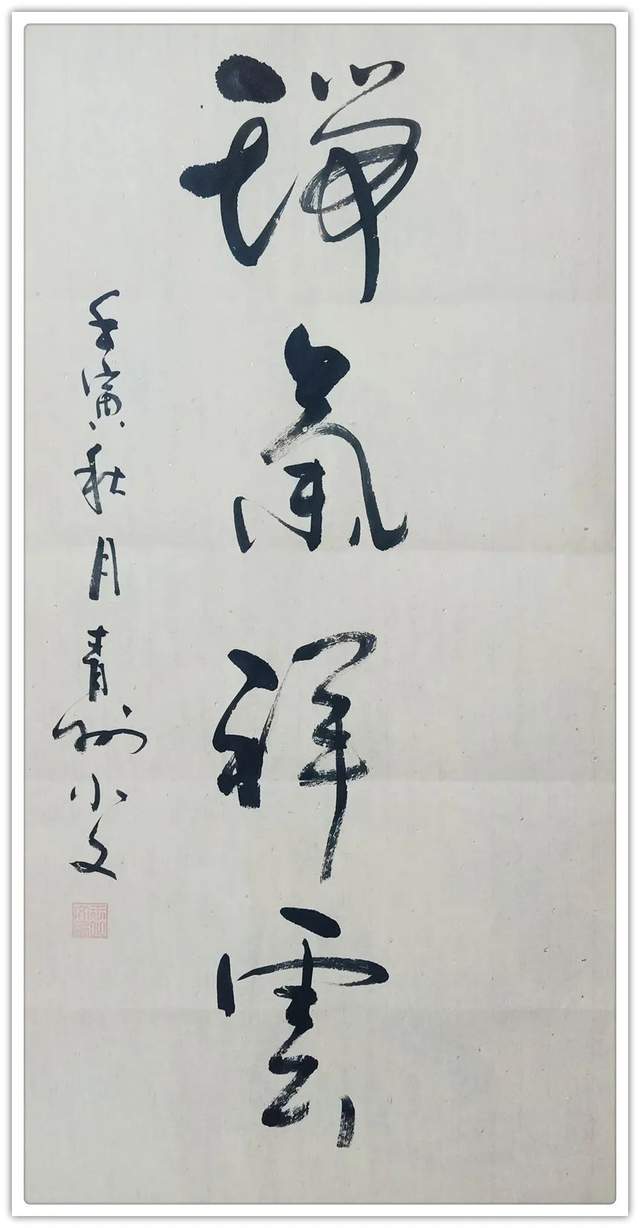 瑞氣祥雲
壬寅秋月青州小文